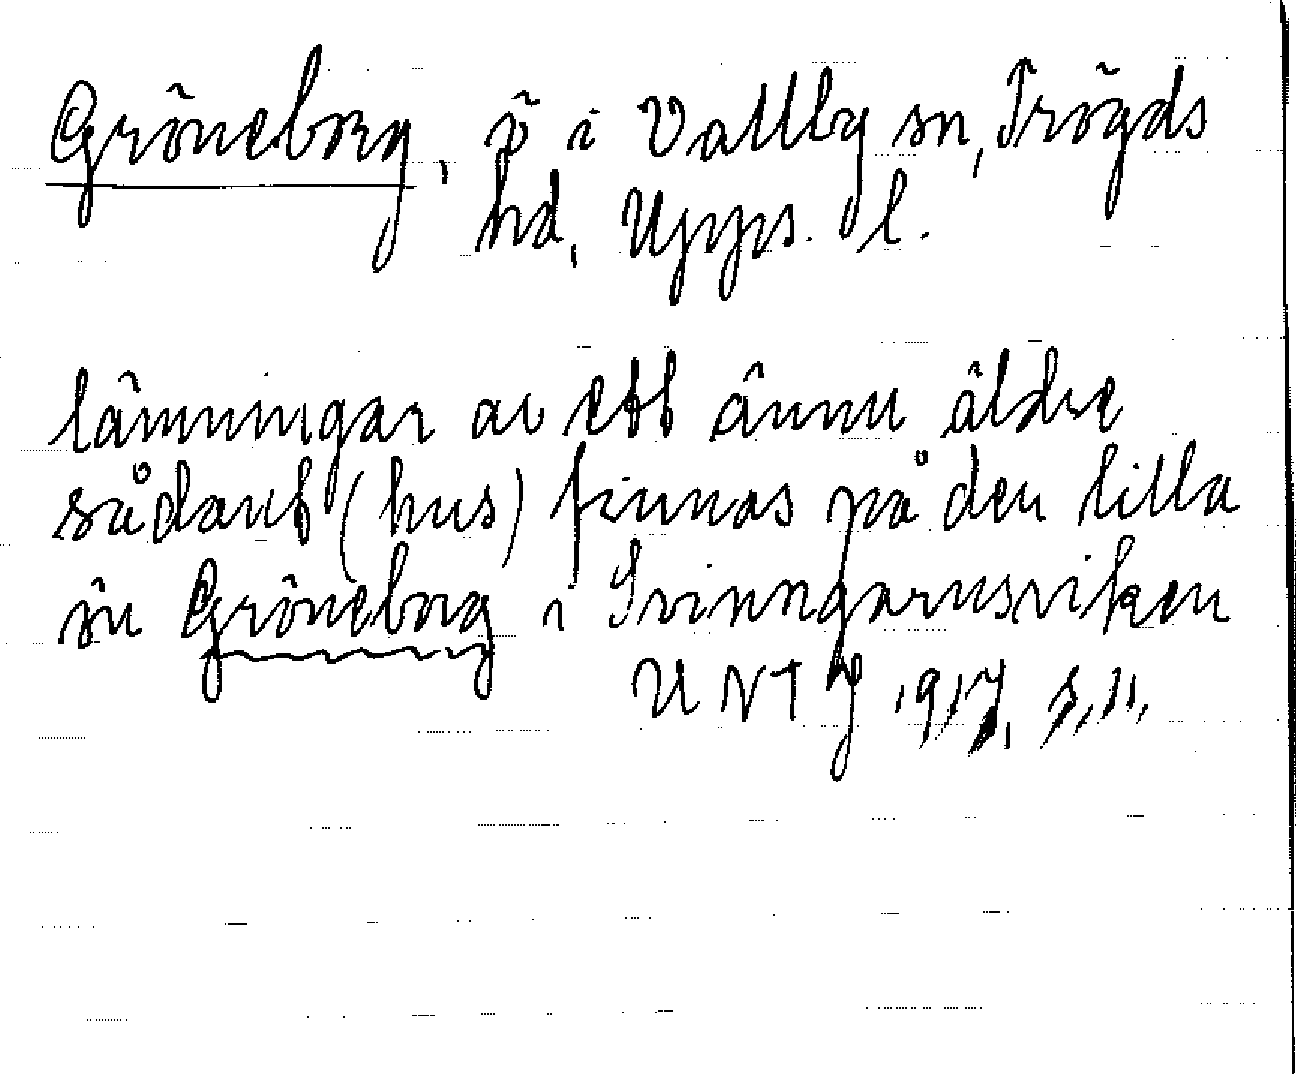 Gröneborg, ö i Vallby sn, Trögds
hd, Upps. l.
lämningar av ett ännu äldre
sådant (hus) finnas på den lilla
ön Gröneborg i Svinngarnsviken
UNT 1917, s, 11,